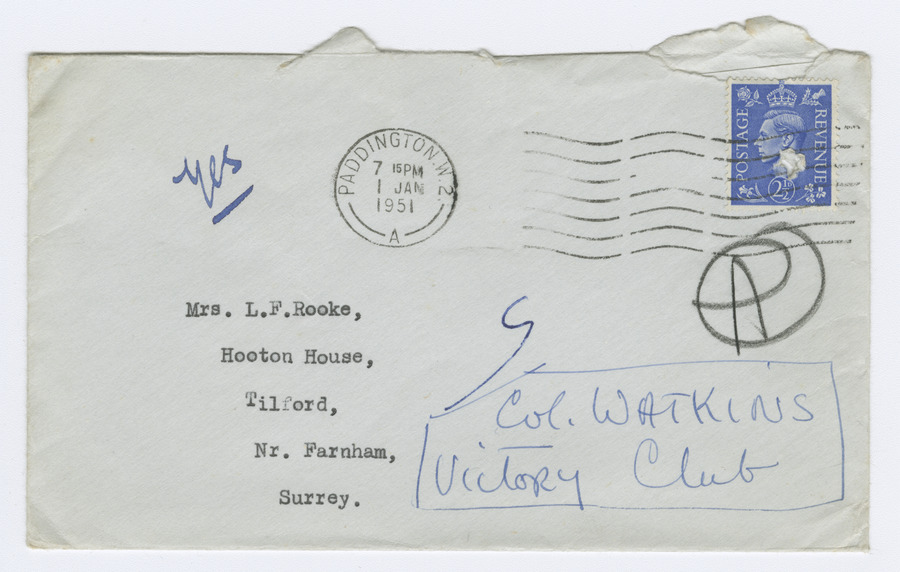 POSTAGE REVENUE
2½
PADDINGTON. W.2.
7 15PM
1 JAN
1951
A
yes
Mrs. L.F.Rooke,
Hooton House,
Tilford,
Nr. Farnham,
Surrey.
Col. WATKINS
Victory Club